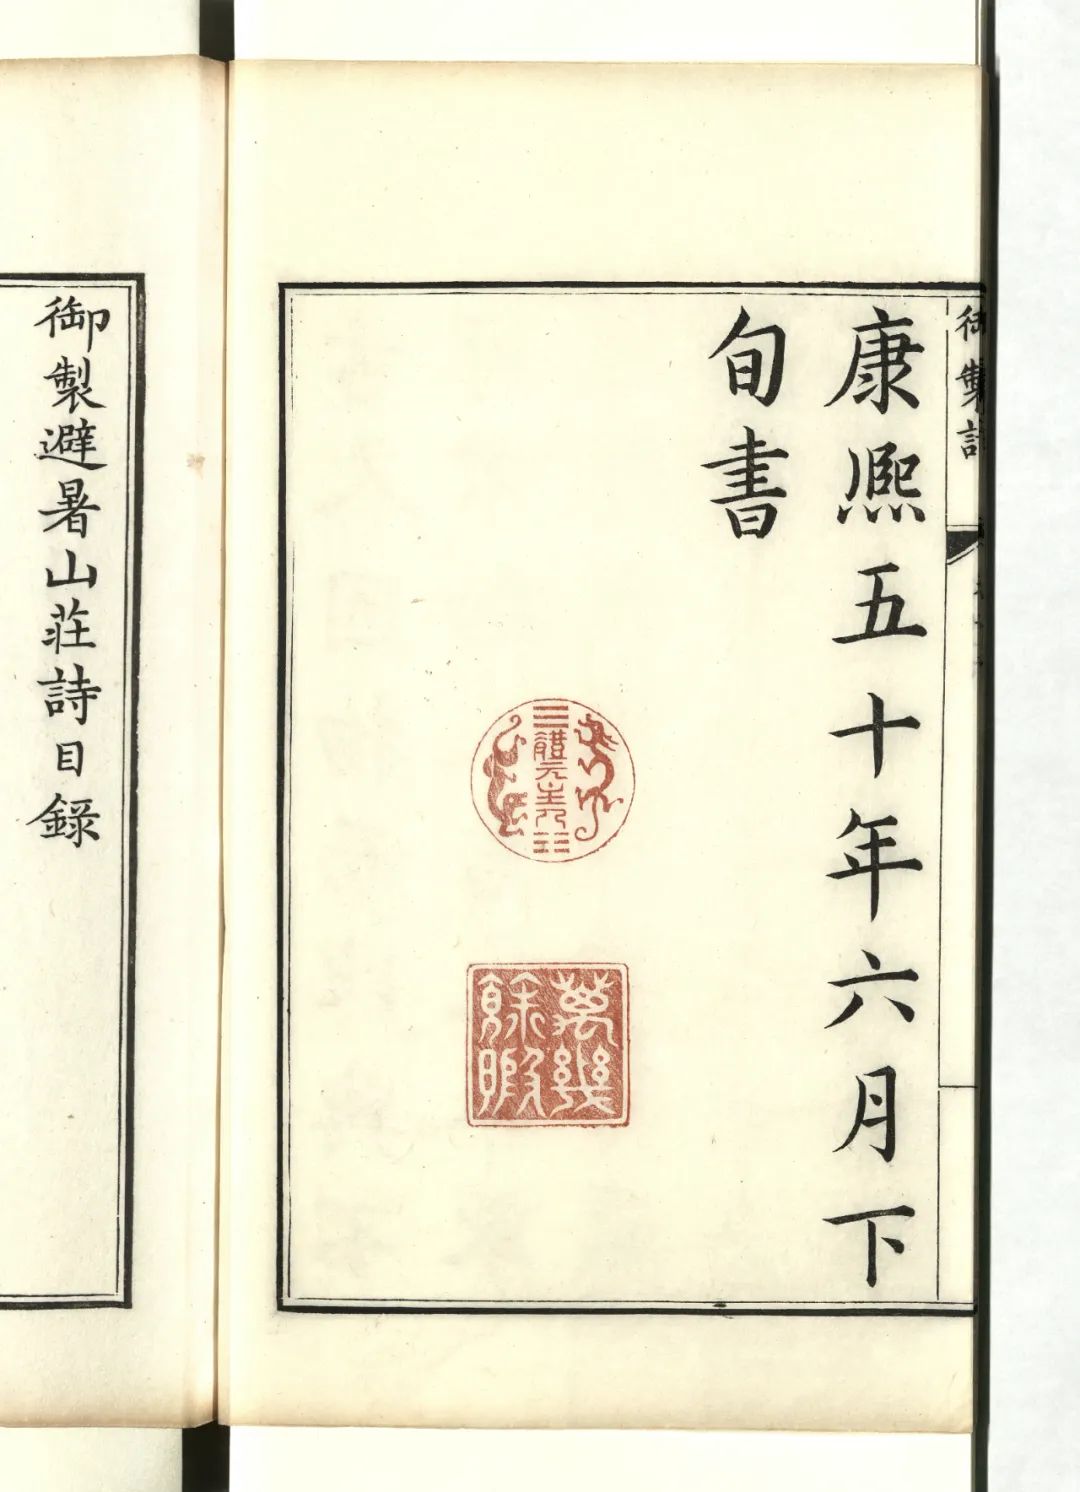 御製詩
康熙五十年六月下
旬書
體元主人
萬幾
餘暇
御製避暑山莊詩目録